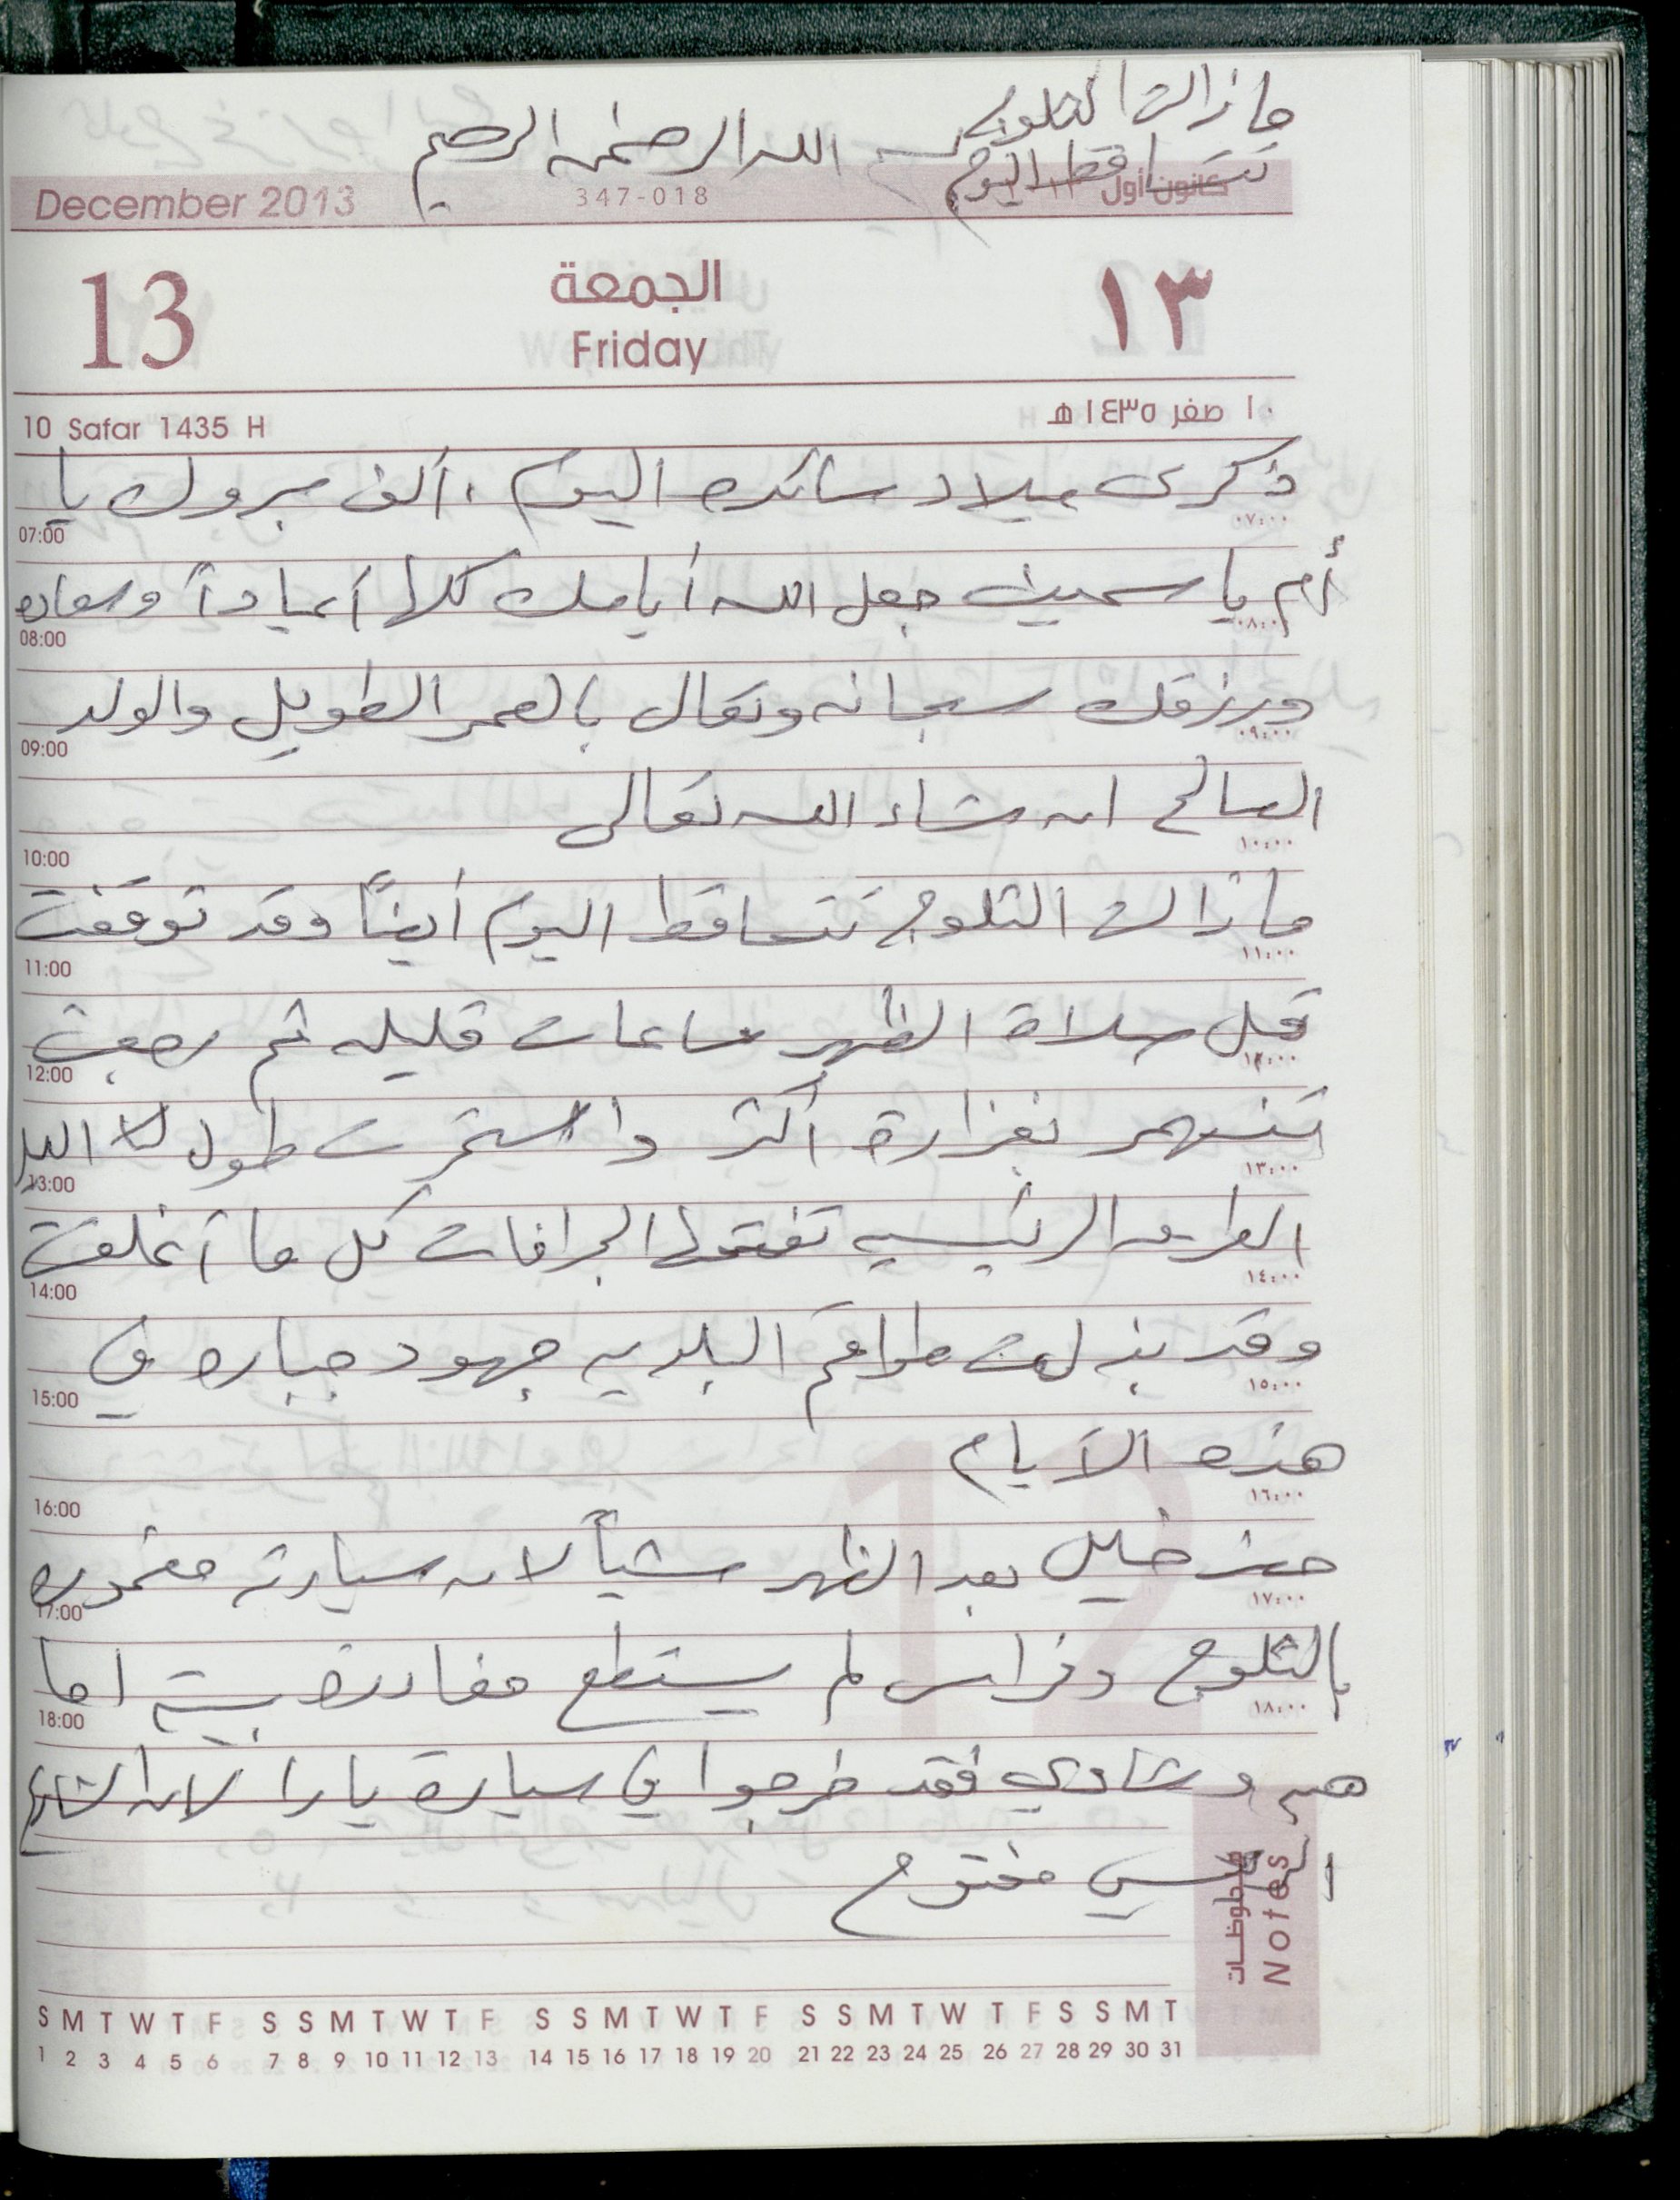 ما زالت الثلوج
تتساقط اليوم
بسم الله الرحمن الرحيم
December 2013
347-018
كانون أول
13
الجمعة
Friday
١٣
10 Safar 1435 H
١٠ صفر ١٤٣٥ هـ
ذكرى ميلاد سائده اليوم ، ألف مبروك يا
07:00 ٠٧:٠٠
أم ياسمين جعل الله أيامك كلها أعياداً وسعاده
08:00 ٠٨:٠٠
ورزقك سبحانه وتعالى بالعمر الطويل والولد
09:00 ٠٩:٠٠
الصالح ان شاء الله تعالى
10:00 ١٠:٠٠
ما زالت الثلوج تتساقط اليوم أيضاً وقد توقفت
11:00 ١١:٠٠
قبل صلاة الظهر ساعات قليله ثم رجعت
12:00 ١٢:٠٠
تنهمر بغزارة أكثر واستمرت طول الليل
13:00 ١٣:٠٠
الطرق الرئيسيه تفتحها الجرافات كل ما أغلقت
14:00 ١٤:٠٠
وقد بذلت طواقم البلديه جهود جباره في
15:00 ١٥:٠٠
هذه الأيام
16:00 ١٦:٠٠
حضر خليل بعد الظهر مشياً لان سيارته مغموره
17:00 ١٧:٠٠
بالثلوج وفراس لم يستطع مغادرة بيته اما
18:00 ١٨:٠٠
هيم وشادي فقد خرجوا في سيارة يارا لان الشارع
الرئيسي مفتوح
ملحوظات
Notes
S M T W T F S S M T W T F S S M T W T F S S M T W T F S S M T
1 2 3 4 5 6 7 8 9 10 11 12 13 14 15 16 17 18 19 20 21 22 23 24 25 26 27 28 29 30 31